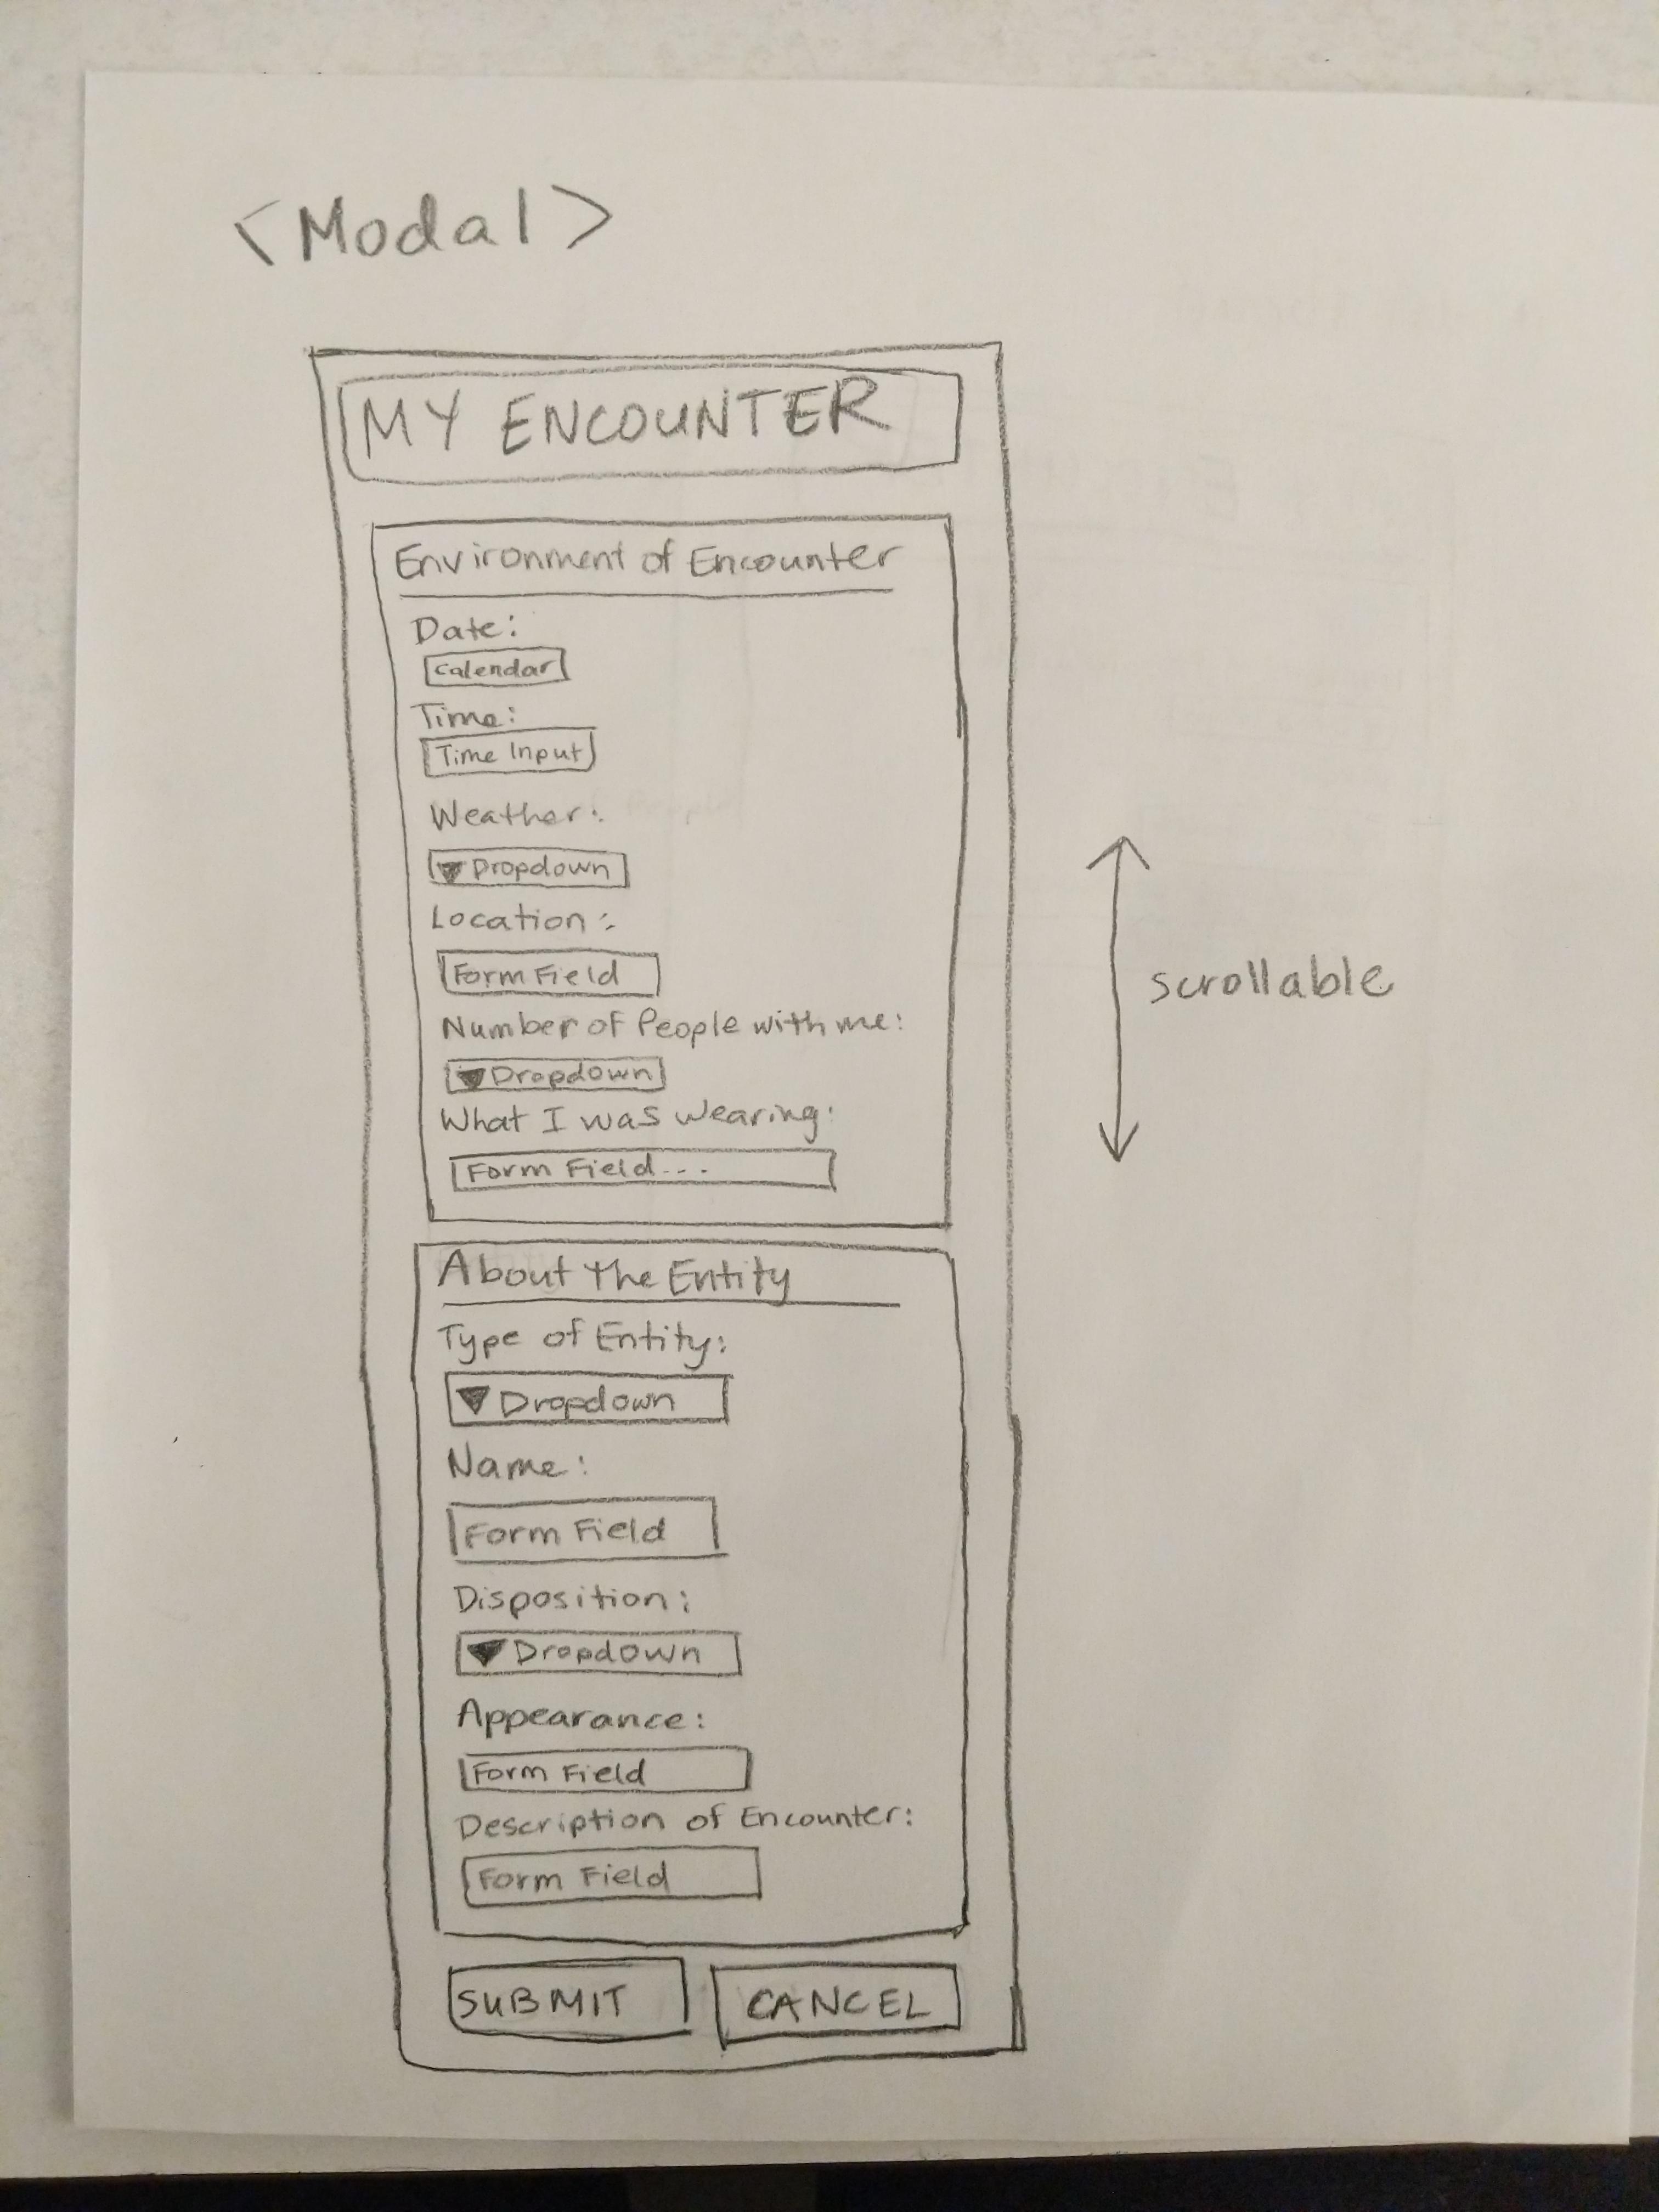 <Modal>
MY ENCOUNTER
Environment of Encounter
Date:
Calendar
Time:
Time Input
Weather:
Dropdown
Location:
Form Field
Number of People with me:
Dropdown
What I was wearing:
Form Field...
scrollable
About the Entity
Type of Entity:
Dropdown
Name:
Form Field
Disposition:
Dropdown
Appearance:
Form Field
Description of Encounter:
Form Field
SUBMIT CANCEL